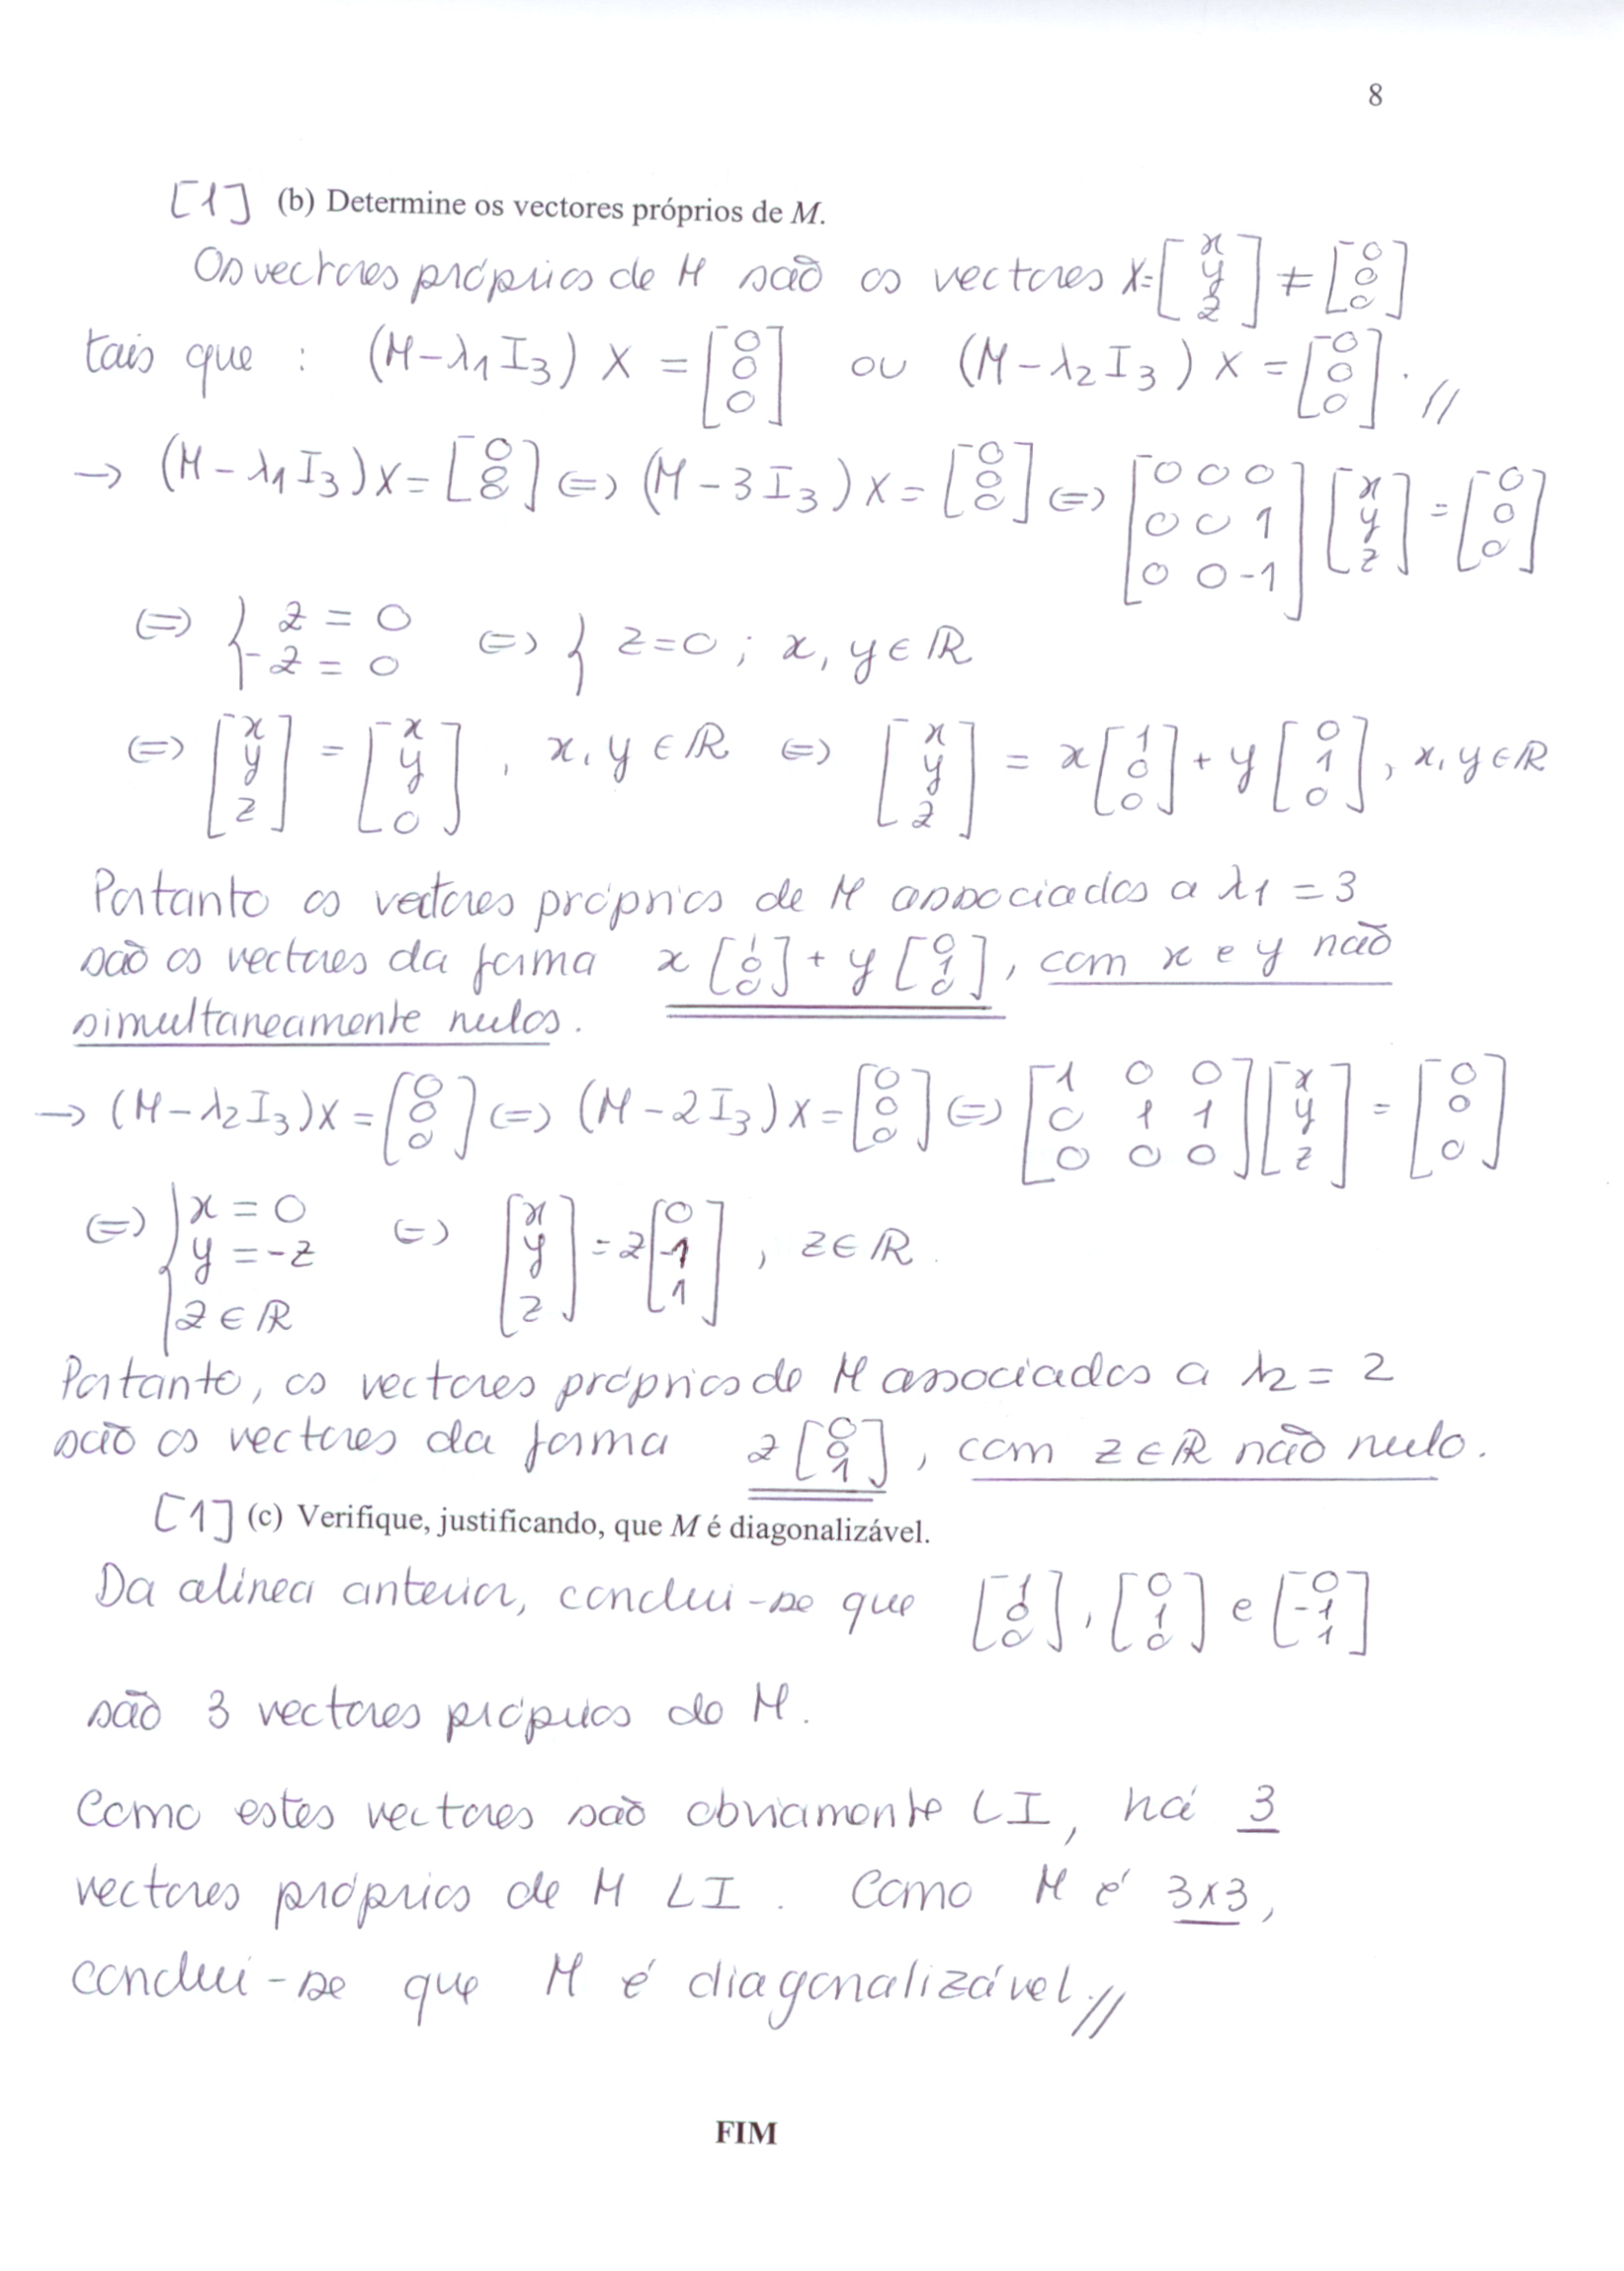 8
[1] (b) Determine os vectores próprios de M.
Os vectores próprios de M são os vectores X=[x y z] ≠ [0 0 0]
tais que : (M-λ1I3) X = [0 0 0] ou (M-λ2I3) X = [0 0 0]. //
→ (M-λ1I3)X=[0 0 0] ⇔ (M-3I3)X=[0 0 0] ⇔ [0 0 0; 0 0 1; 0 0 -1] [x y z] = [0 0 0]
⇔ { z = 0; -z = 0 ⇔ { z=0 ; x, y ∈ ℝ
⇔ [x y z] = [x y 0], x, y ∈ ℝ ⇔ [x y z] = x[1 0 0] + y[0 1 0], x, y ∈ ℝ
Portanto os vectores próprios de M associados a λ1 = 3
são os vectores da forma x[1 0 0] + y[0 1 0], com x e y não
simultaneamente nulos.
→ (M-λ2I3)X=[0 0 0] ⇔ (M-2I3)X=[0 0 0] ⇔ [1 0 0; 0 1 1; 0 0 0] [x y z] = [0 0 0]
⇔ { x = 0; y = -z; z ∈ ℝ ⇔ [x y z] = z[0 -1 1], z ∈ ℝ.
Portanto, os vectores próprios de M associados a λ2 = 2
são os vectores da forma z[0 0 1], com z ∈ ℝ não nulo.
[1] (c) Verifique, justificando, que M é diagonalizável.
Da alínea anterior, conclui-se que [1 0 0], [0 1 0] e [0 -1 1]
são 3 vectores próprios de M.
Como estes vectores são obviamente LI, há 3
vectores próprios de M LI. Como M é 3x3,
conclui-se que M é diagonalizável. //
FIM